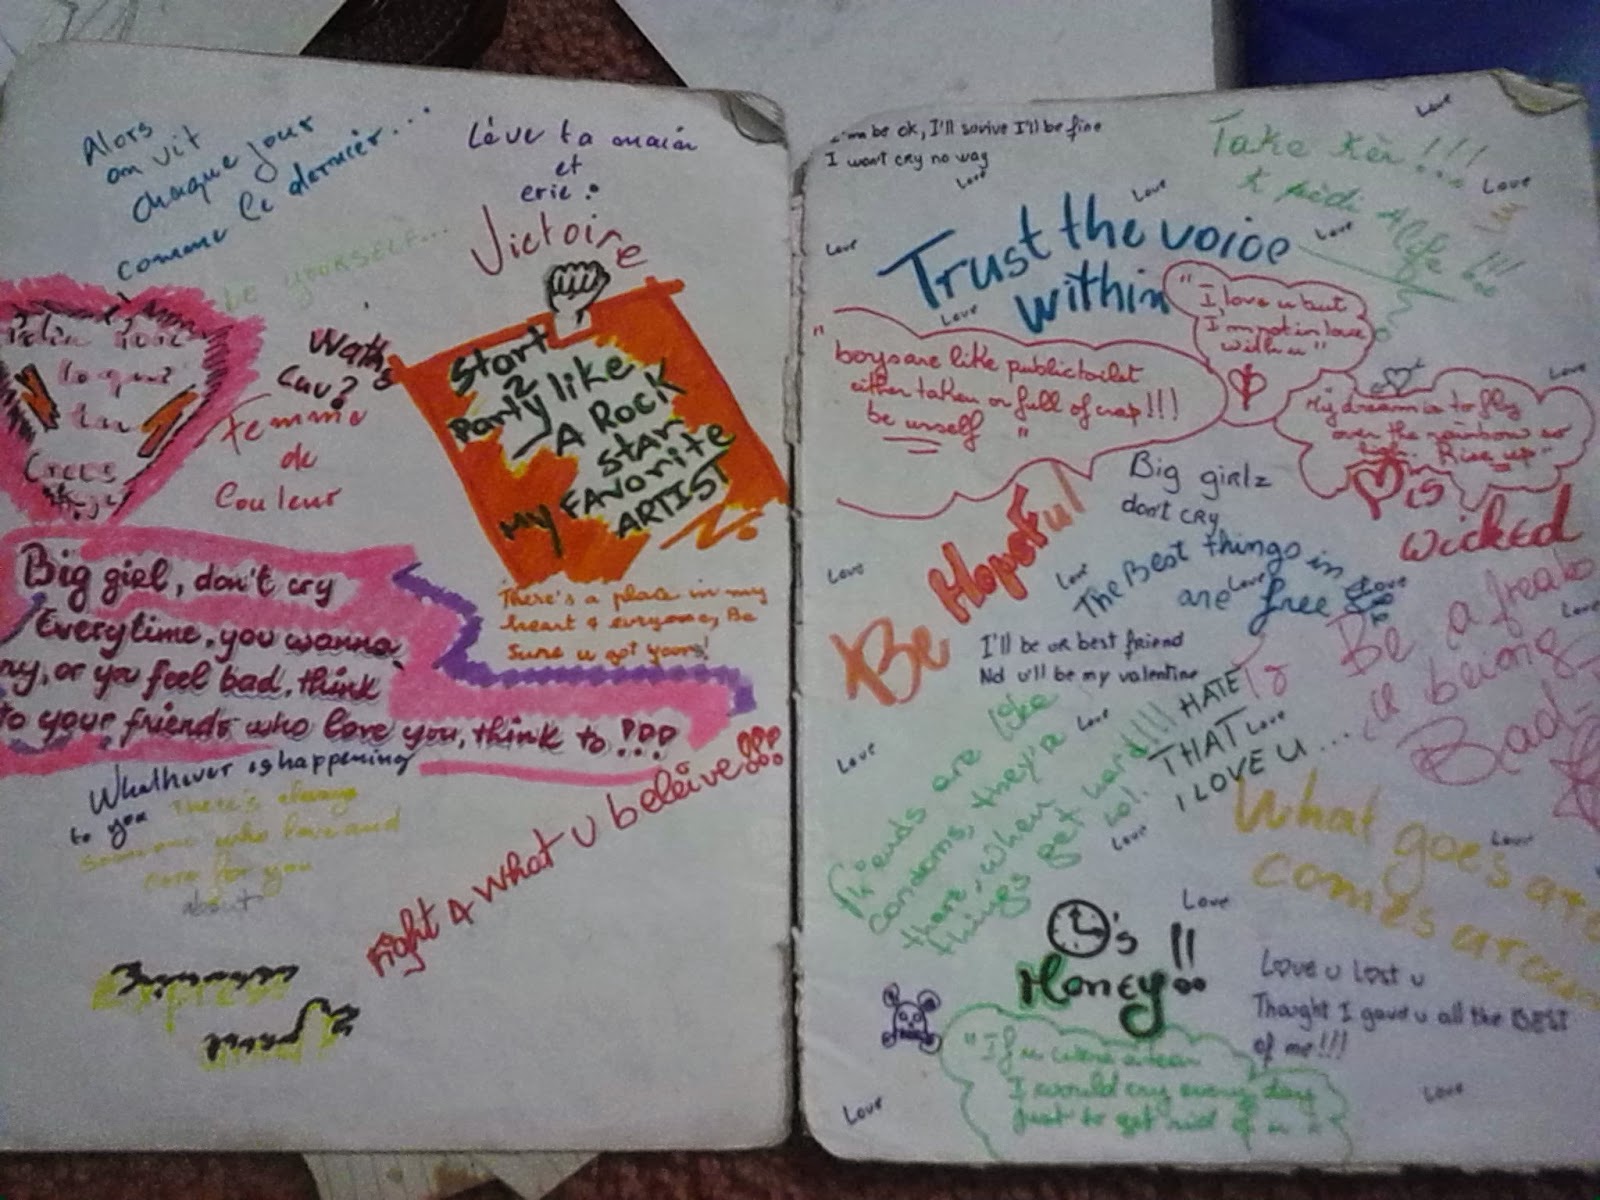 Alors
on vit
chaque jour
comme le dernier...
be yourself...
Lève ta main
et
crie :
Victoire
Wath's
Luv?
Femme
de
Couleur
Start
2
Party like
A Rock
star
My FAVorite
ARTIST
Big girl, don't cry
Everytime, you wanna
, or you feel bad, think
to your friends who love you, think to !!!
There's a place in my
heart 4 everyone, Be
Sure u got yours!
Whathever is happening
to you There's always
someone who love and
care for you
about
Fight 4 what u beleive!!!
be ok, I'll sorvive I'll be fine
I wont cry no way
Love
Love
Take Kèr!!!
Love
Love
Love
Love
Love
Trust the voice
within
"I love u but
I'm not in love
with u"
"boys are like public toilet
either taken or full of crap!!!
be urself"
Love
My dream is to fly
over the rainbow so
high. Rise up"
is
wicked
Big girlz
don't cry
Be Hopeful
Love
Love
The Best things in
are Love free
Love
I'll be ur best friend
Nd u'll be my valentine
Be a freak
is being
Bad
I HATE
THAT Love
I LOVE U...
Love
Love
friends are like
condoms, they're
there when
things get hard!!!
lol.
Love
What goes
comes
Love
Love
's !!
Honey!!
Love u lost u
Thought I gave u all the BEST
of me!!!
"If u were a tear
I would cry every day
just to get rid of u"
Love
Love